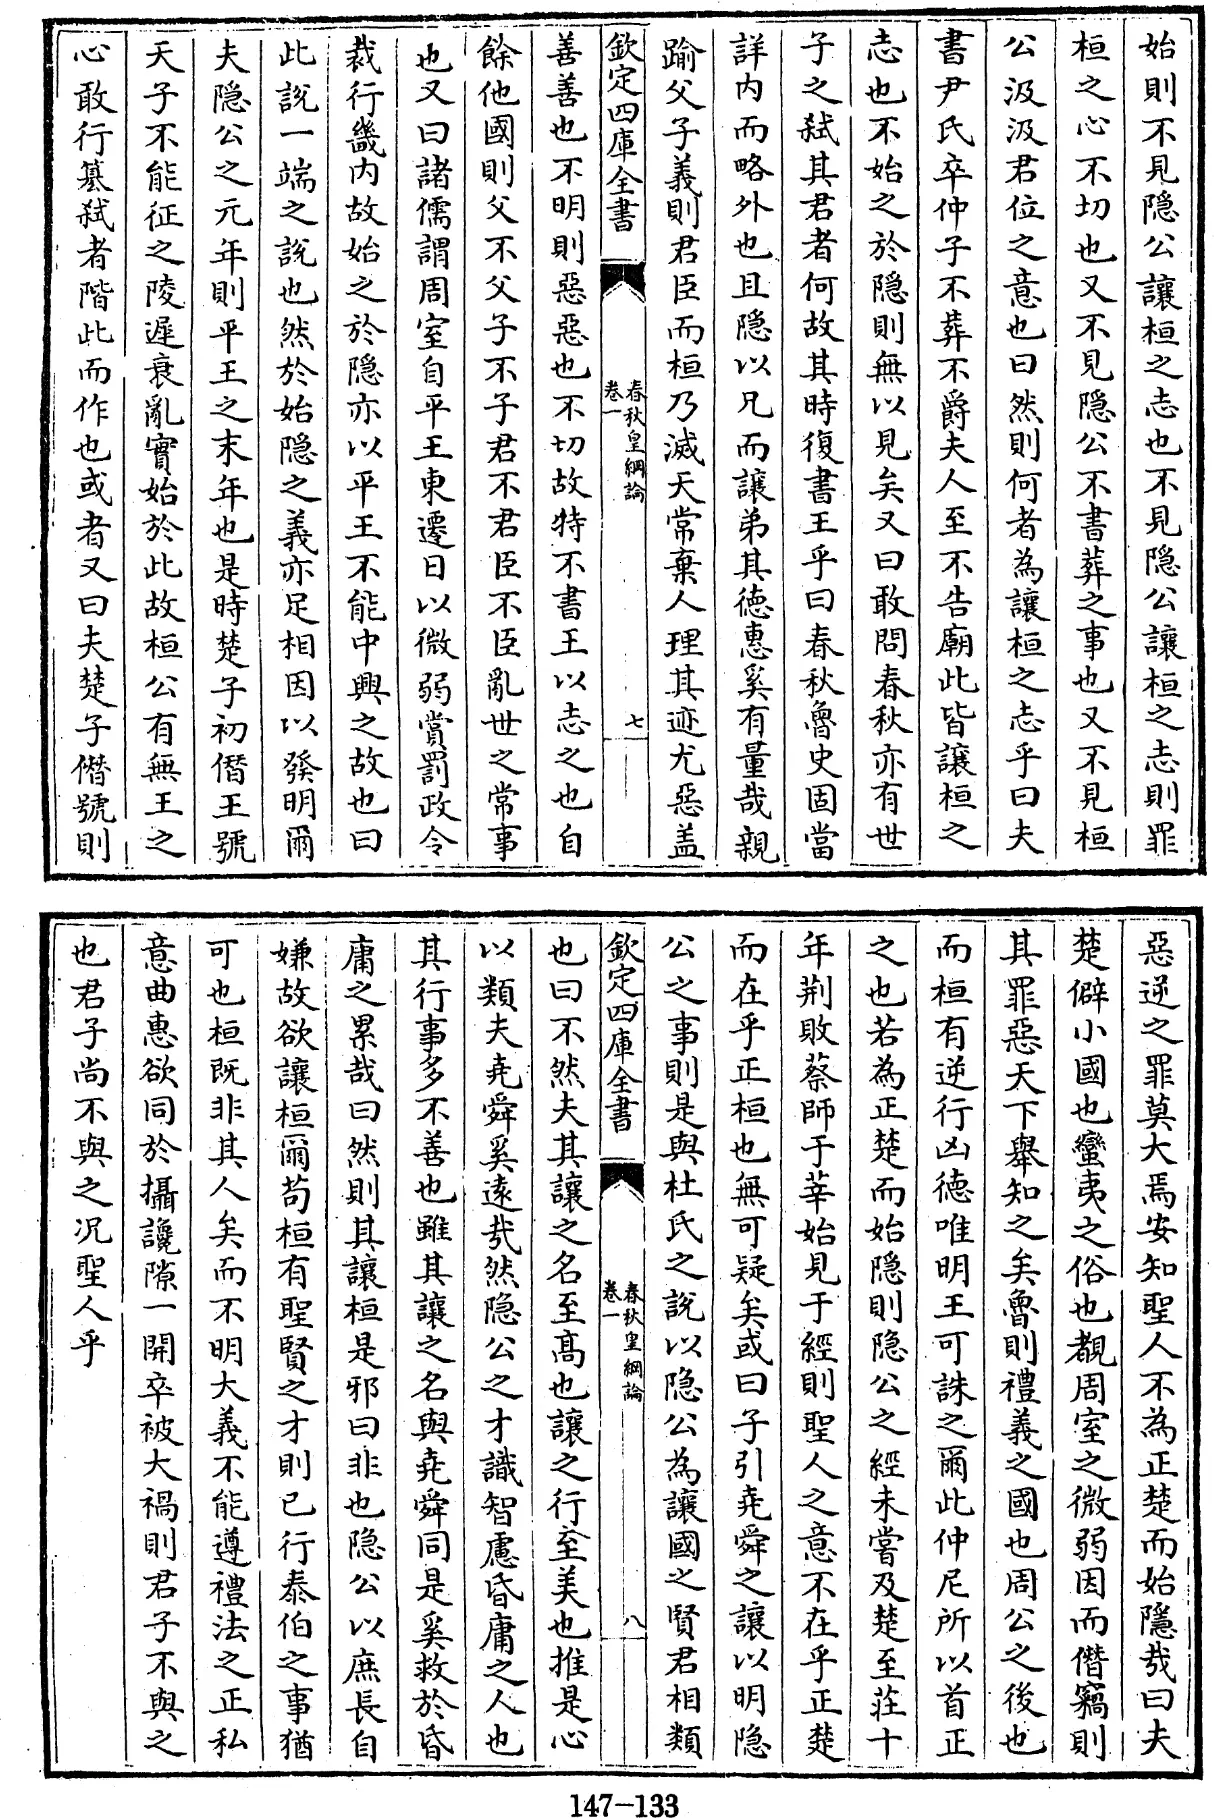 始則不見隱公讓桓之志也不見隱公讓桓之志則罪
桓之心不切也又不見隱公不書葬之事也又不見桓
公汲汲君位之意也曰然則何者為讓桓之志乎曰夫
書尹氏卒仲子不葬不爵夫人至不告廟此皆讓桓之
志也不始之於隱則無以見矣又曰敢問春秋亦有世
子之弑其君者何故其時復書王乎曰春秋魯史固當
詳内而略外也且隱以兄而讓弟其德惠奚有量哉親
踰父子義則君臣而桓乃滅天常棄人理其迹尤惡盖
欽定四庫全書
春秋皇綱論
卷一
七
善善也不明則惡惡也不切故特不書王以志之也自
餘他國則父不父子不子君不君臣不臣亂世之常事
也又曰諸儒謂周室自平王東遷日以微弱賞罰政令
裁行畿内故始之於隱亦以平王不能中興之故也曰
此說一端之說也然於始隱之義亦足相因以發明爾
夫隱公之元年則平王之末年也是時楚子初僭王號
天子不能征之陵遲衰亂實始於此故桓公有無王之
心敢行簒弑者階此而作也或者又曰夫楚子僭號則
惡逆之罪莫大焉安知聖人不為正楚而始隱哉曰夫
楚僻小國也蠻夷之俗也覩周室之微弱因而僭竊則
其罪惡天下舉知之矣魯則禮義之國也周公之後也
而桓有逆行凶德唯明王可誅之爾此仲尼所以首正
之也若為正楚而始隱則隱公之經未嘗及楚至莊十
年荆敗蔡師于莘始見于經則聖人之意不在乎正楚
而在乎正桓也無可疑矣或曰子引堯舜之讓以明隱
公之事則是與杜氏之說以隱公為讓國之賢君相類
欽定四庫全書
春秋皇綱論
卷一
八
也曰不然夫其讓之名至高也讓之行至美也推是心
以類夫堯舜奚遠哉然隱公之才識智慮昏庸之人也
其行事多不善也雖其讓之名與堯舜同是奚救於昏
庸之累哉曰然則其讓桓是邪曰非也隱公以庶長自
嫌故欲讓桓爾茍桓有聖賢之才則已行泰伯之事猶
可也桓既非其人矣而不明大義不能遵禮法之正私
意曲惠欲同於攝讒隙一開卒被大禍則君子不與之
也君子尚不與之况聖人乎
147—133